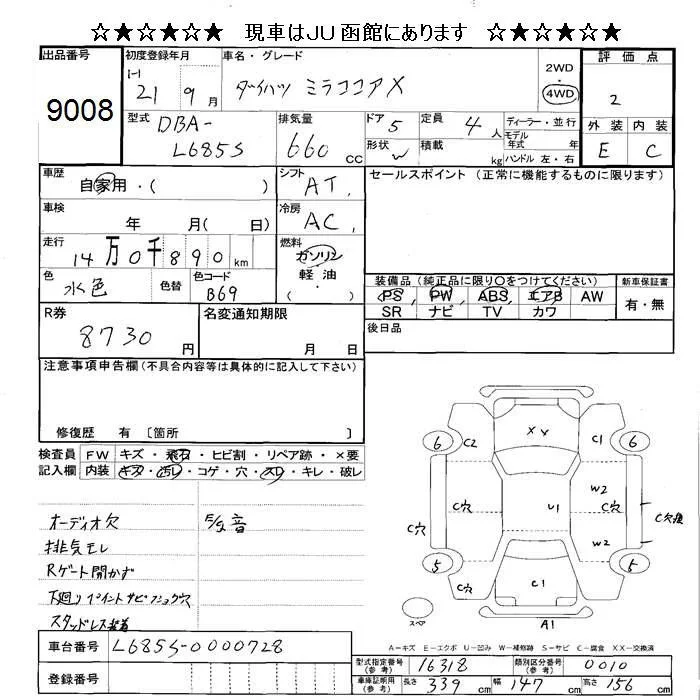 ☆★☆★☆★ 現車はJU函館にあります ☆★☆★☆★
出品番号
9008
初度登録年月
H
21 9月
車名・グレード
ダイハツ ミラココアX
2WD
・
4WD
評価点
2
外装 内装
E C
型式
DBA-
L685S
排気量
660 cc
ドア 5
形状 W
定員 4人
積載 kg
ディーラー・並行
モデル
年式 年
ハンドル 左・右
車歴
自家用・( )
シフト
AT
車検
年 月( 日)
冷房
AC
走行
14万0千890km
燃料
ガソリン
・
軽油
( )
色
水色
色替
色コード
B69
セールスポイント(正常に機能するものに限ります)
装備品(純正品に限り○をつけてください)
PS PW ABS エアB AW
SR ナビ TV カワ
新車保証書
有・無
R券
8730円
名変通知期限
月 日
後日品
注意事項申告欄(不具合内容等は具体的に記入して下さい)
修復歴 有 〔箇所 〕
検査員
記入欄
FW キズ・飛石・ヒビ割・リペア跡・×要
内装 キズ・汚レ・コゲ・穴・スレ・キレ・破レ
オーディオ欠
排気モレ
Rゲート開かず
スタッドレス装着
車台番号 L685S-0000728
登録番号
6 C2 XX C1 6
C穴 C穴 U1 W2 C穴 W2 C穴後
5 C穴 C1 C穴 5
スペア
A1
A=キズ E=エクボ U=凹み W=補修跡 S=サビ C=腐食 XX=交換済
型式指定番号
(参考)
16318
類別区分番号
(参考)
0010
車庫証明用
(参考)
長さ 339cm 幅 147cm 高さ 156cm